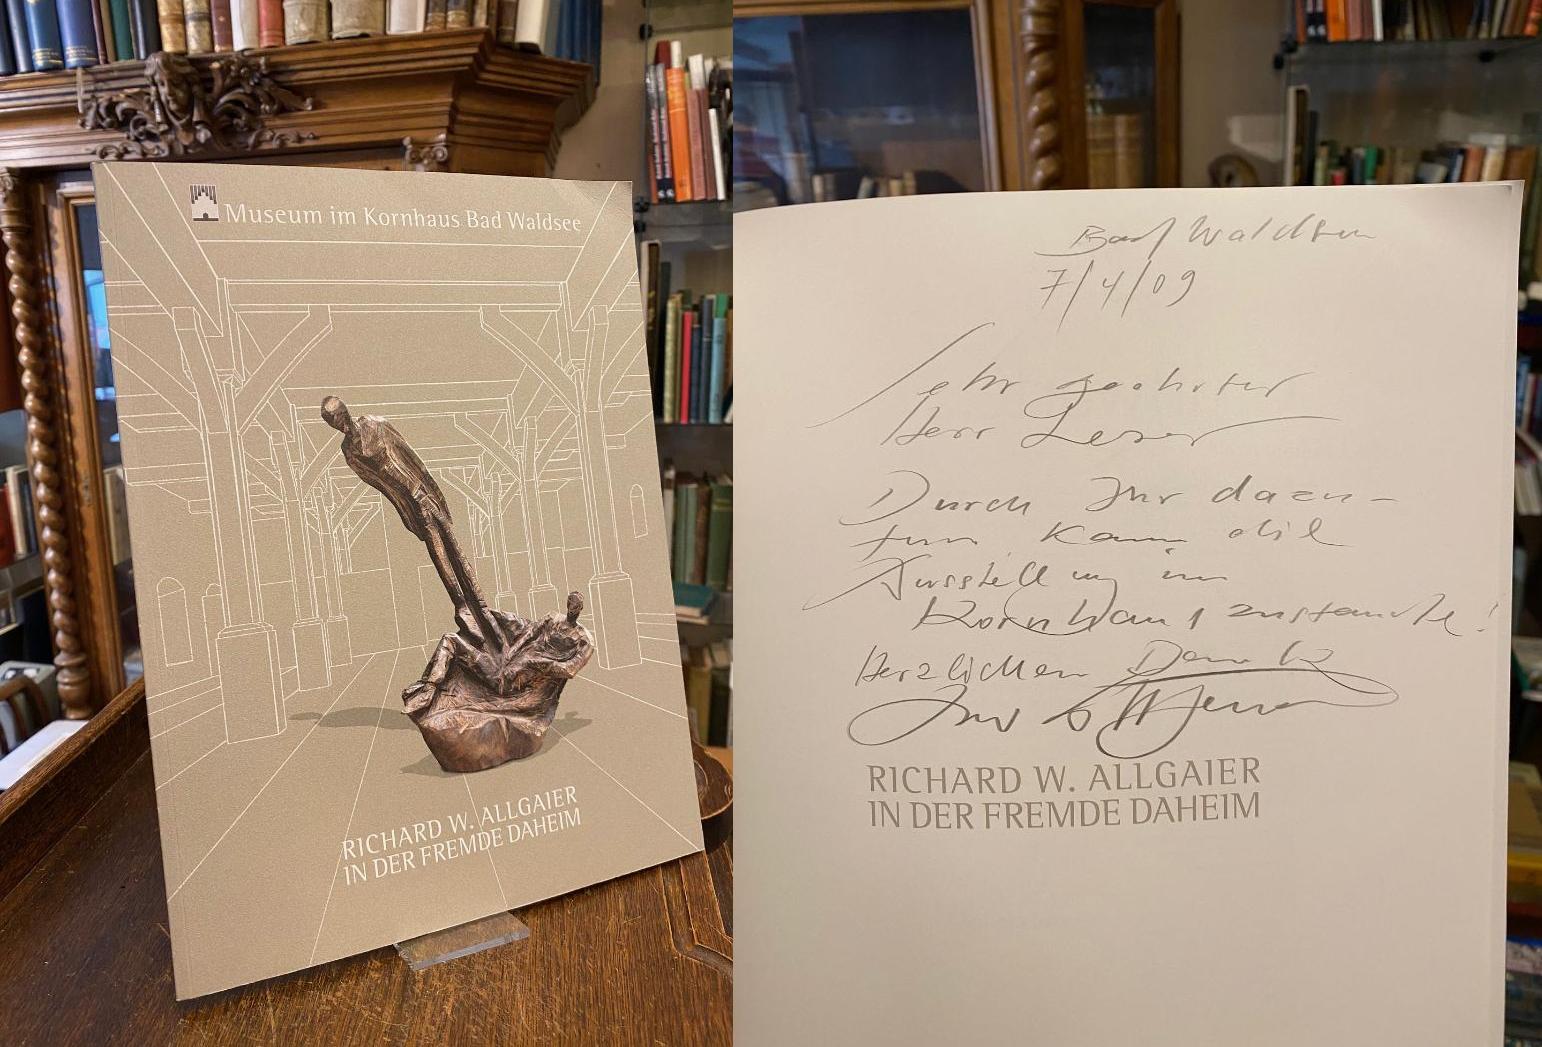 Museum im Kornhaus Bad Waldsee
RICHARD W. ALLGAIER
IN DER FREMDE DAHEIM
Bad Waldsee
7/4/09
Sehr geehrter
Herr Leser
Durch Ihr dazu-
tun kam die
Ausstellung im
Kornhaus zustande!
Herzlichen Dank
Ihr
RICHARD W. ALLGAIER
IN DER FREMDE DAHEIM